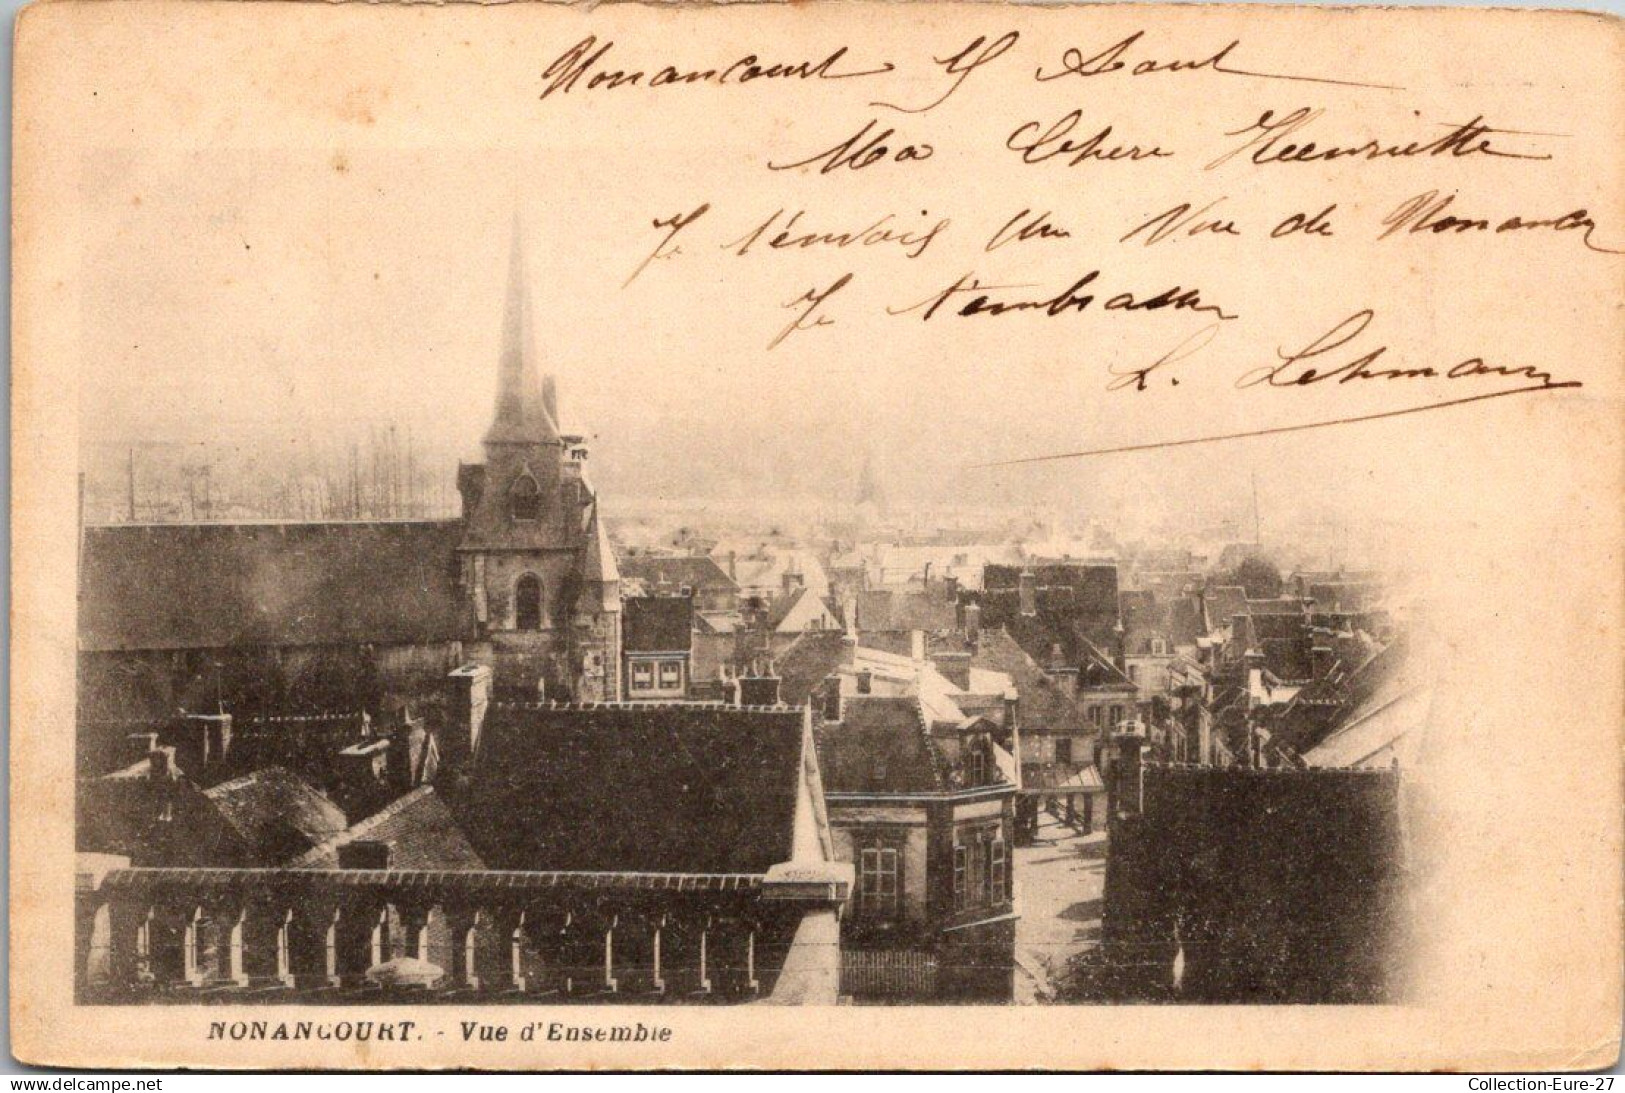 Nonancourt 15 Aout
Ma Chere Henriette
Je t'envois une Vue de Nonanco
Je t'embrasse
L. Lehmann
NONANCOURT. - Vue d'Ensemble
www.delcampe.net
Collection-Eure-27